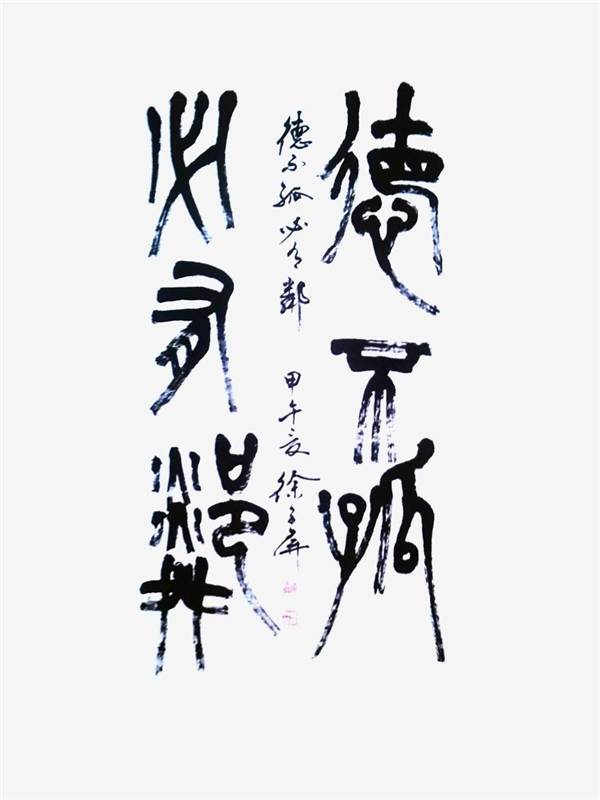 德不孤
德不孤必有鄰 甲午夏 徐子屏
必有鄰